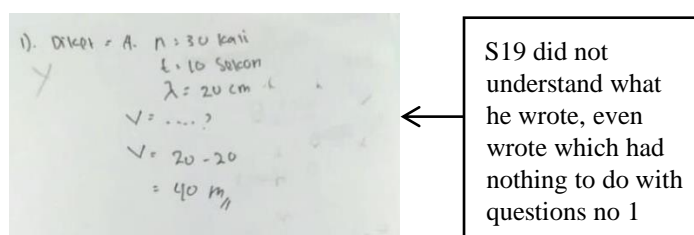 1). Diket = A. n = 30 kali
t = 10 Sekon
λ = 20 cm
V = ....?
V = 20 - 20
= 40 m //
S19 did not
understand what
he wrote, even
wrote which had
nothing to do with
questions no 1